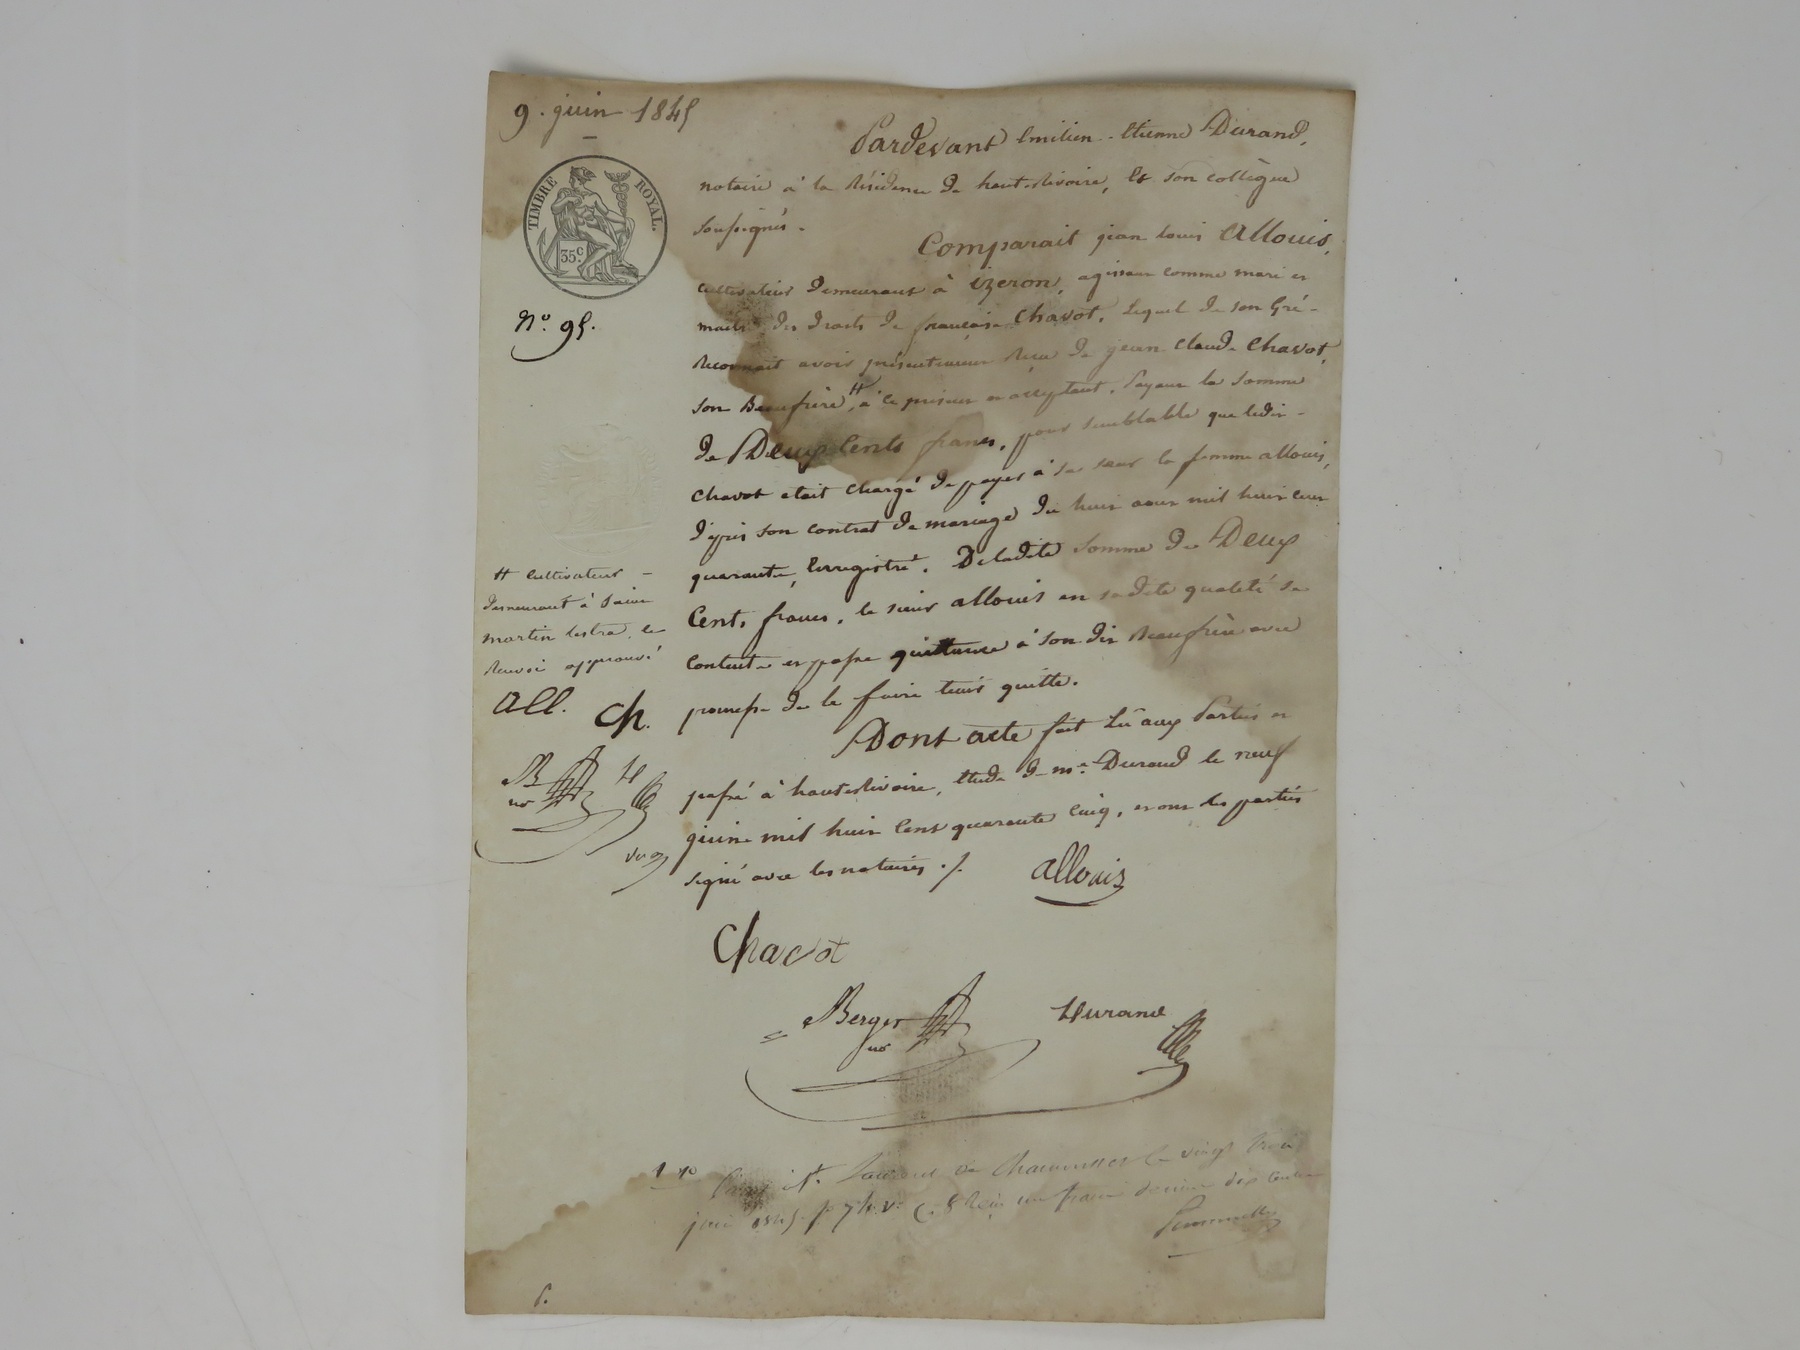 9. juin 1845
Pardevant Emilien-Etienne Durand,
notaire à la Résidence de haute-Rivoire, Et son collègue
Soussignés.
TIMBRE ROYAL.
35c.
Comparait jean louis Allouis,
cultivateur demeurant à izeron, agissant comme mari et
maître des droits de françoise Chavot, Lequel de son Gré
Reconnait avoir présentement Reçu de jean Claude Chavot,
son Beaufrère # à ce présent et acceptant, Payant la Somme
de Deux Cents francs, pour semblable que ledit
Chavot etait Chargé de payer à sa sœur la femme allouis,
d'après son contrat de mariage du huit aout mil huit cent
quarante, Enregistré. De ladite Somme de Deux
Cents francs, le sieur allouis en sadite qualité se
Contente et passe quittance à son dit Beaufrère avec
promesse de le faire tenir quitte.
Dont acte fait Lu aux Parties et
passé à haute-Rivoire, Etude de me. Durand le neuf
juin mil huit Cent quarante Cinq, et ont les parties
signé avec les notaires ./.
No. 95.
# Cultivateur
demeurant à Saint
martin lestra, le
Renvoi approuvé
All. Ch.
B
nre
allouis
Chavot
Berger
nre
Durand
St. Laurent de Chamousset le vingt trois
juin 1845 fo 74 vo C. 8 Reçu un franc décime dix Centimes